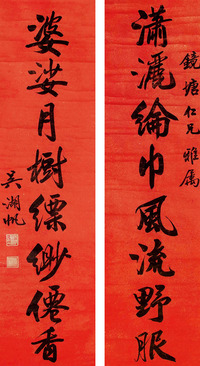 鏡塘仁兄雅屬
瀟灑綸巾風流野服
婆娑月樹縹緲僊香
吳湖帆